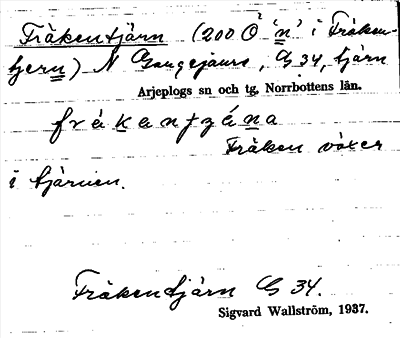 Fräkentjärn (200 Ö 'n' i Fräken-
tjern) N Gaugejaure, G 34, tjärn
Arjeplogs sn och tg, Norrbottens län.
frákantyána
Fräken växer
i tjärnen.
Fräkentjärn G 34.
Sigvard Wallström, 1937.